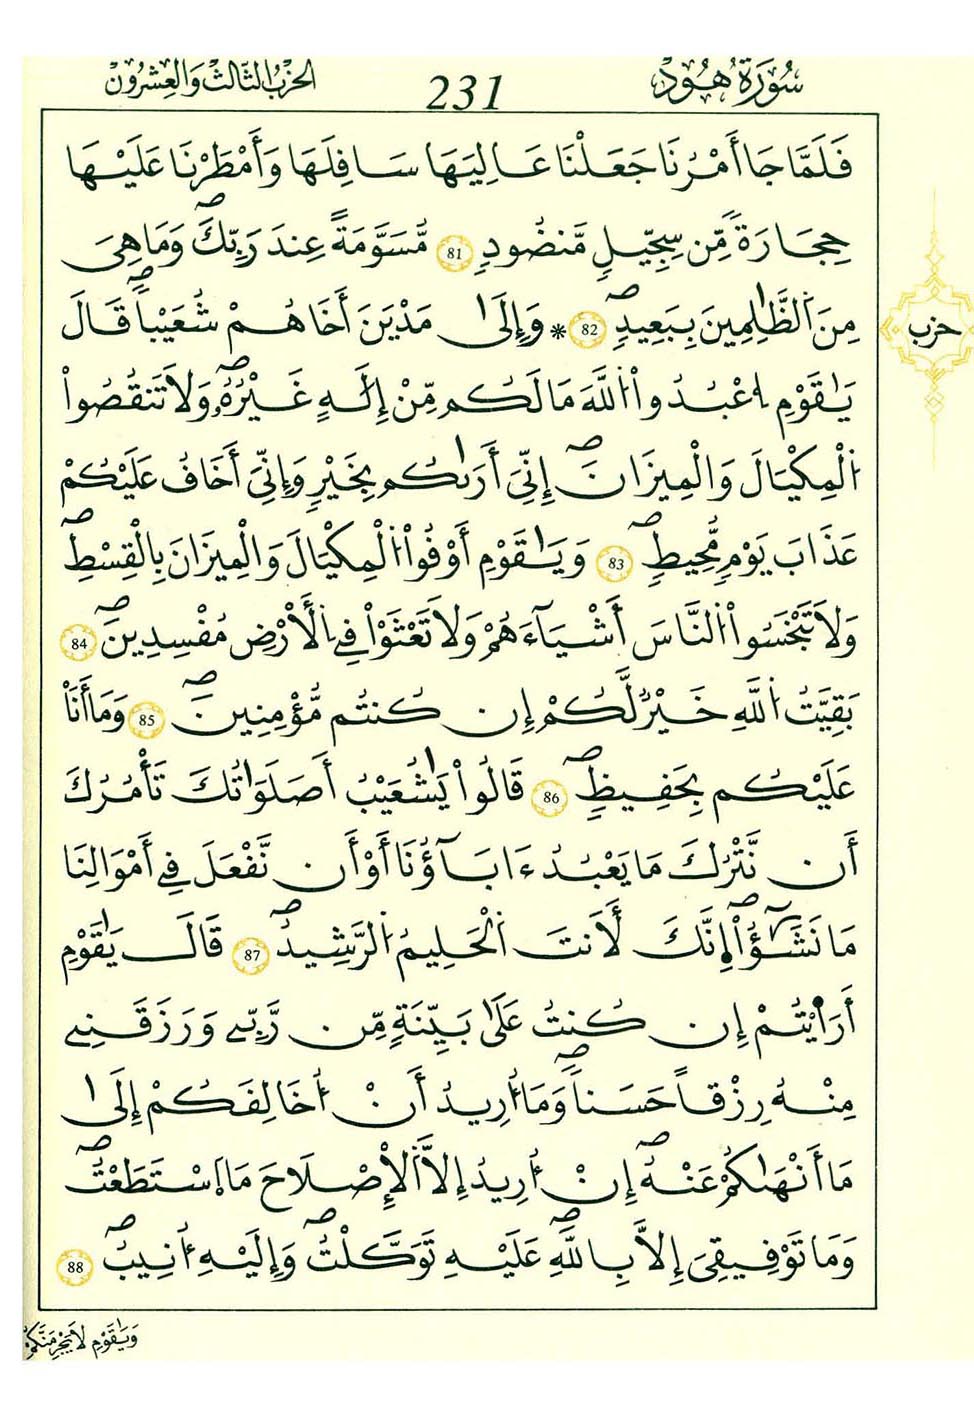 سُورَةُ هُودٍ
231
الحِزْبُ الثَّالِثُ وَالعِشْرُونَ
فَلَمَّا جَا أَمْرُنَا جَعَلْنَا عَـٰلِيَهَا سَافِلَهَا وَأَمْطَرْنَا عَلَيْهَا
حِجَارَةً مِّن سِجِّيلٍ مَّنضُودٍ 81 مُّسَوَّمَةً عِندَ رَبِّكَۖ وَمَا هِيَ
مِنَ اَ۬لظَّـٰلِمِينَ بِبَعِيدٍۖ 82 * وَإِلَىٰ مَدْيَنَ أَخَاهُمْ شُعَيْباًۖ قَالَ
يَـٰقَوْمِ اِ۟عْبُدُواْ اُ۬للَّهَ مَا لَكُم مِّنْ إِلَـٰهٍ غَيْرُهُۥۖ وَلَا تَنقُصُواْ
اُ۬لْمِكْيَالَ وَالْمِيزَانَۖ إِنِّيَ أَر۪ىٰكُم بِخَيْرٍ وَإِنِّيَ أَخَافُ عَلَيْكُمْ
عَذَابَ يَوْمٍ مُّحِيطٍۖ 83 وَيَـٰقَوْمِ أَوْفُواْ اُ۬لْمِكْيَالَ وَالْمِيزَانَ بِالْقِسْطِۖ
وَلَا تَبْخَسُواْ اُ۬لنَّاسَ أَشْيَآءَهُمْ وَلَا تَعْثَوْاْ فِے اِ۬لَارْضِ مُفْسِدِينَۖ 84
بَقِيَّتُ اُ۬للَّهِ خَيْرٌ لَّكُمُۥٓ إِن كُنتُم مُّؤْمِنِينَۖ 85 وَمَا أَنَا۠
عَلَيْكُم بِحَفِيظٍۖ 86 قَالُواْ يَـٰشُعَيْبُ أَصَلَوَٰتُكَ تَأْمُرُكَ
أَن نَّتْرُكَ مَا يَعْبُدُ ءَابَآؤُنَا أَوْ أَن نَّفْعَلَ فِے أَمْوَالِنَا
مَا نَشَـٰٓؤُاْۖ اِ۪نَّكَ لَأَنتَ اَ۬لْحَلِيمُ اُ۬لرَّشِيدُۖ 87 قَالَ يَـٰقَوْمِ
أَرَٰ۟يْتُمْ إِن كُنتُ عَلَىٰ بَيِّنَةٍ مِّن رَّبِّے وَرَزَقَنِے
مِنْهُ رِزْقاً حَسَناًۖ وَمَا أُرِيدُ أَنْ ا۟خَالِفَكُمْ إِلَىٰ
مَا أَنْهَـٰكُمْ عَنْهُۖ إِنْ ا۟رِيدُ إِلَّا اَ۬لْإِصْلَاحَ مَا اَ۪سْتَطَعْتُۖ
وَمَا تَوْفِيقِيَ إِلَّا بِاللَّهِۖ عَلَيْهِ تَوَكَّلْتُۖ وَإِلَيْهِ ا۟نِيبُۖ 88
حزب
وَيَـٰقَوْمِ لَا يَجْرِمَنَّكُمْ